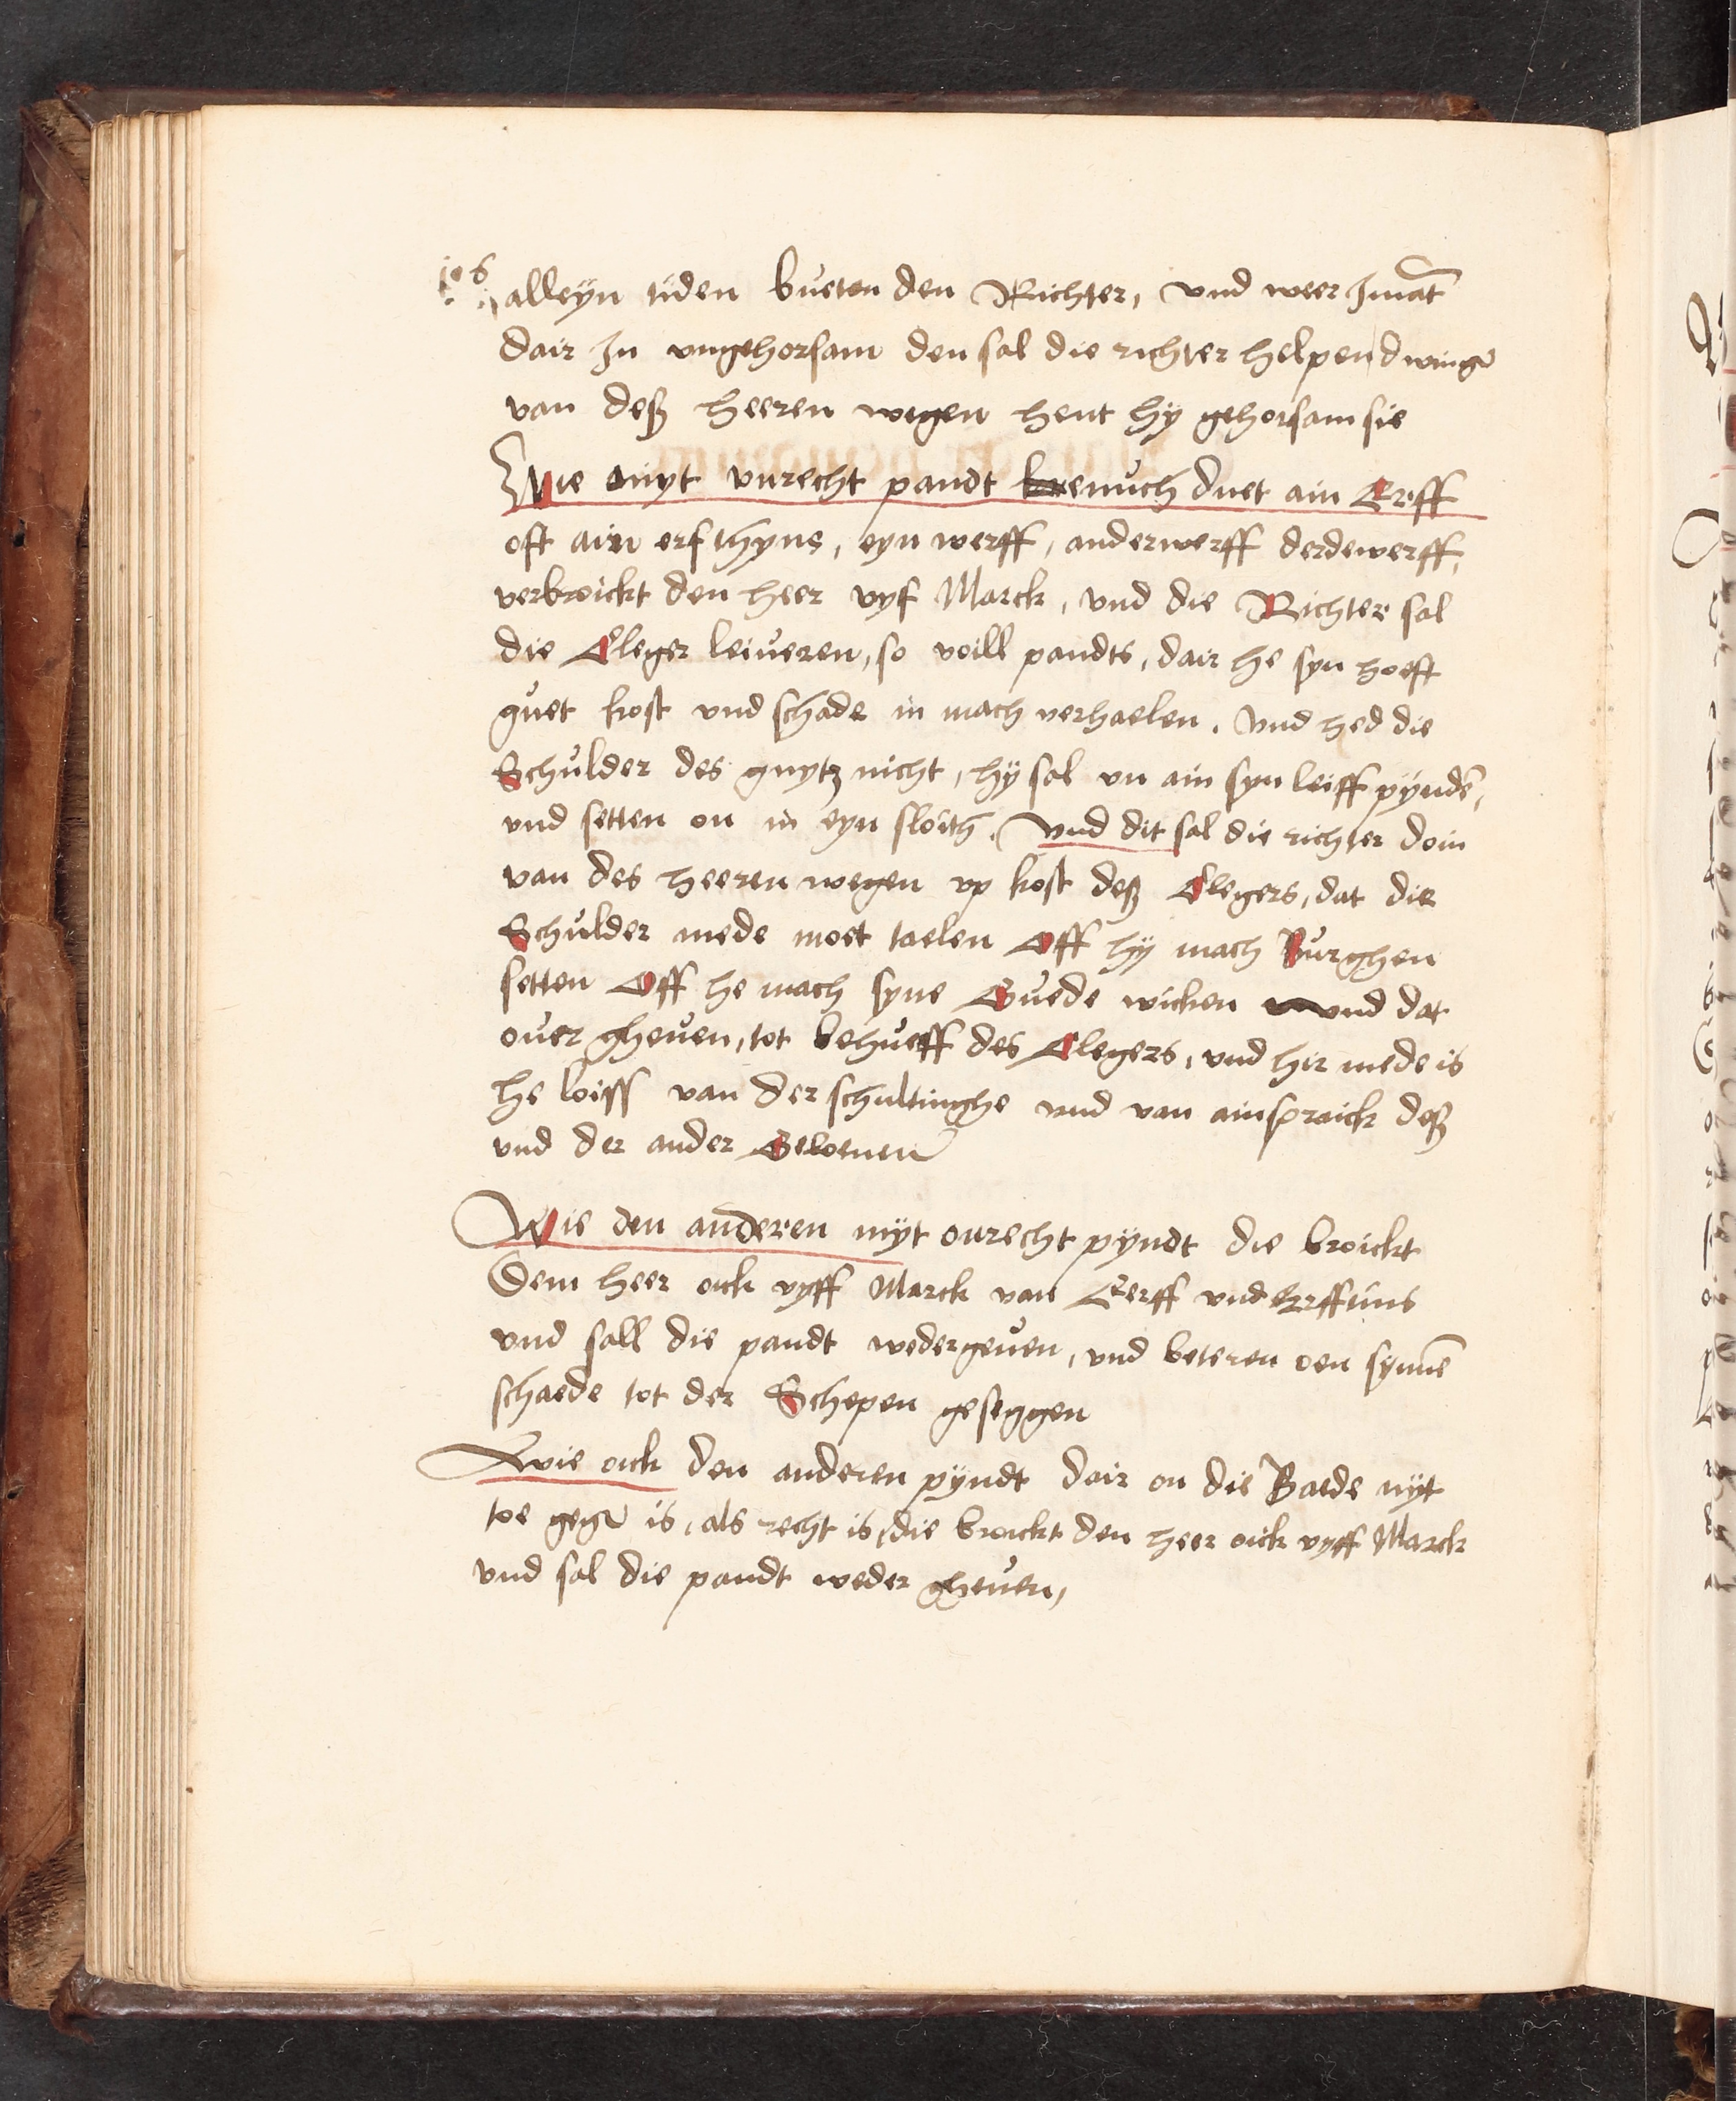 alleyn tiden bueten den Richter, vnd weer Jmat
dair Jn vngehorsam den sal die richter helpen dwing
van deß heeren wegen hent hÿ gehorsam sie
Wie myt vnrecht pandt kemuch duet ain Erff
oft ain erfthyns, eyn werff, anderwerff derdewerff,
verbroickt den heer vyf Marck, vnd die Richter sal
die Cleger leiueren, so voill pandts, dair he syn hoeft
guet kost vnd schade in mach verhaelen. Vnd hed die
Schulder des guytz nicht, hÿ sal vn ain syn leiff pynde,
vnd setten on in eyn sloith. Vnd dit sal die richter doin
van des heeren wegen vp kost deß Clegers, dat die
Schulder mede moet taelen Off hÿ mach Burghen
setten Off he mach syne Guede wicken vnd dat
ouer gheuen, tot behueff des Clegers, vnd hir mede is
he loiss van der schultinghe vnd van ainspraick deß
vnd der ander Geloeuen
Wie den anderen mÿt onrecht pÿndt die broickt
Dem heer oick vyff Marck van Eerff vnd Erfftins
vnd sall die pandt wedergeuen, vnd beteren oen synne
schaede tot der Schepen geseggen
Wie oick den anderen pÿndt dair on die Baede nÿt
toe gege is, als recht is, die broickt den heer oick vyff Marck
vnd sal die pandt weder gheuen,